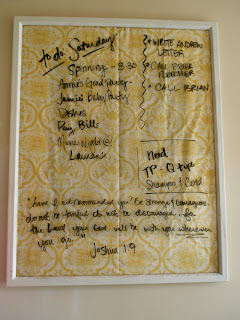 to do: Saturday:
Spinning - 8:30
Annie's Grad Party -
Jamie's Baby Party
Dishes
Pay Bills
Movie Night @
Lauren's
* WRITE ANDREW
LETTER
* CALL PETER
* CALL BRIAN
need
TP - Q tips
Shampoo & Cond
"have I not commanded you? Be Strong & Courageous.
do not be fearful do not be discouraged. for
the Lord your God will be with you wherever
you go."
Joshua 1:9